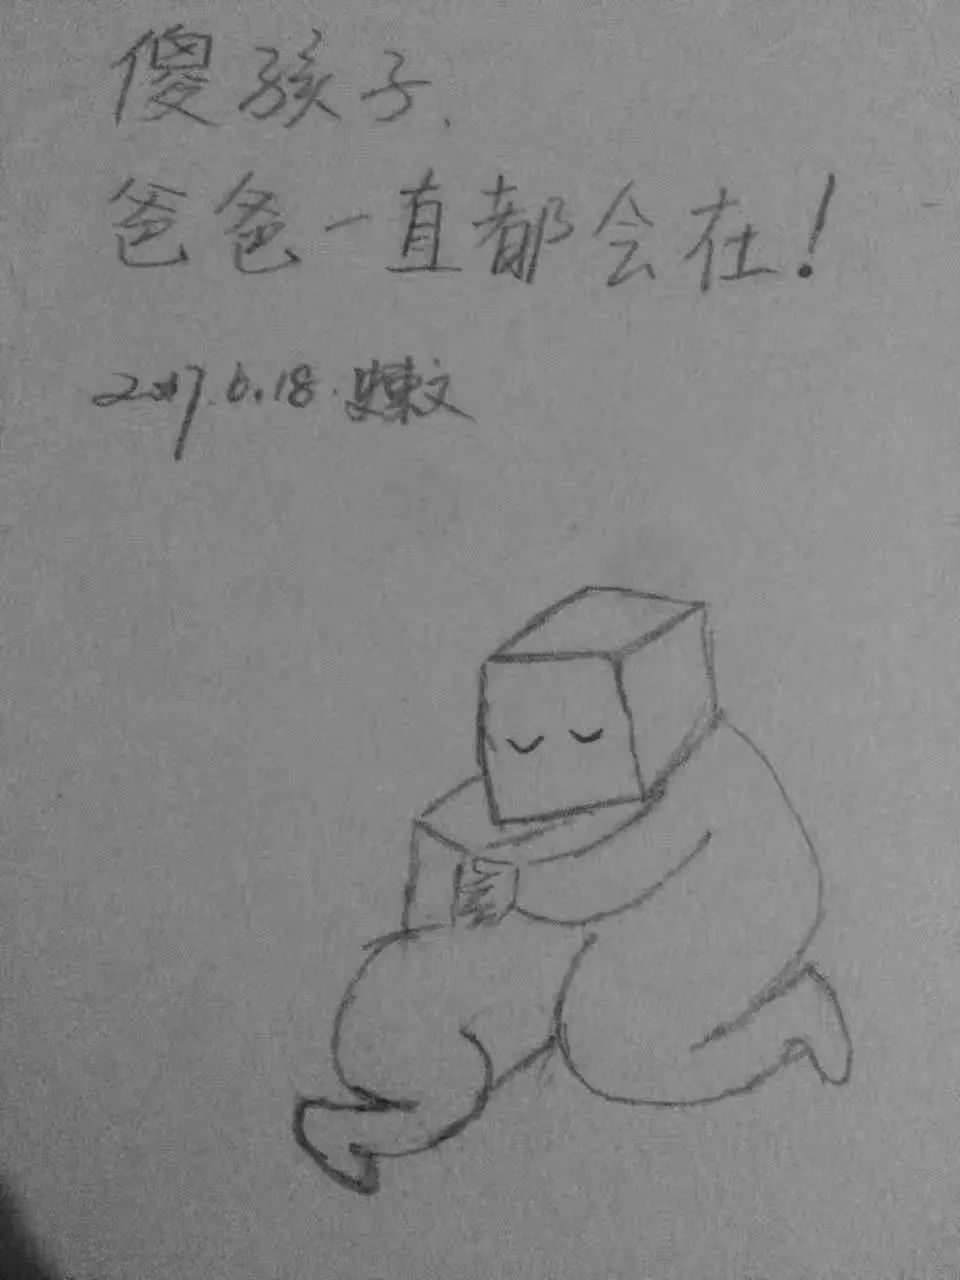 傻孩子.
爸爸一直都会在!
2017.6.18.